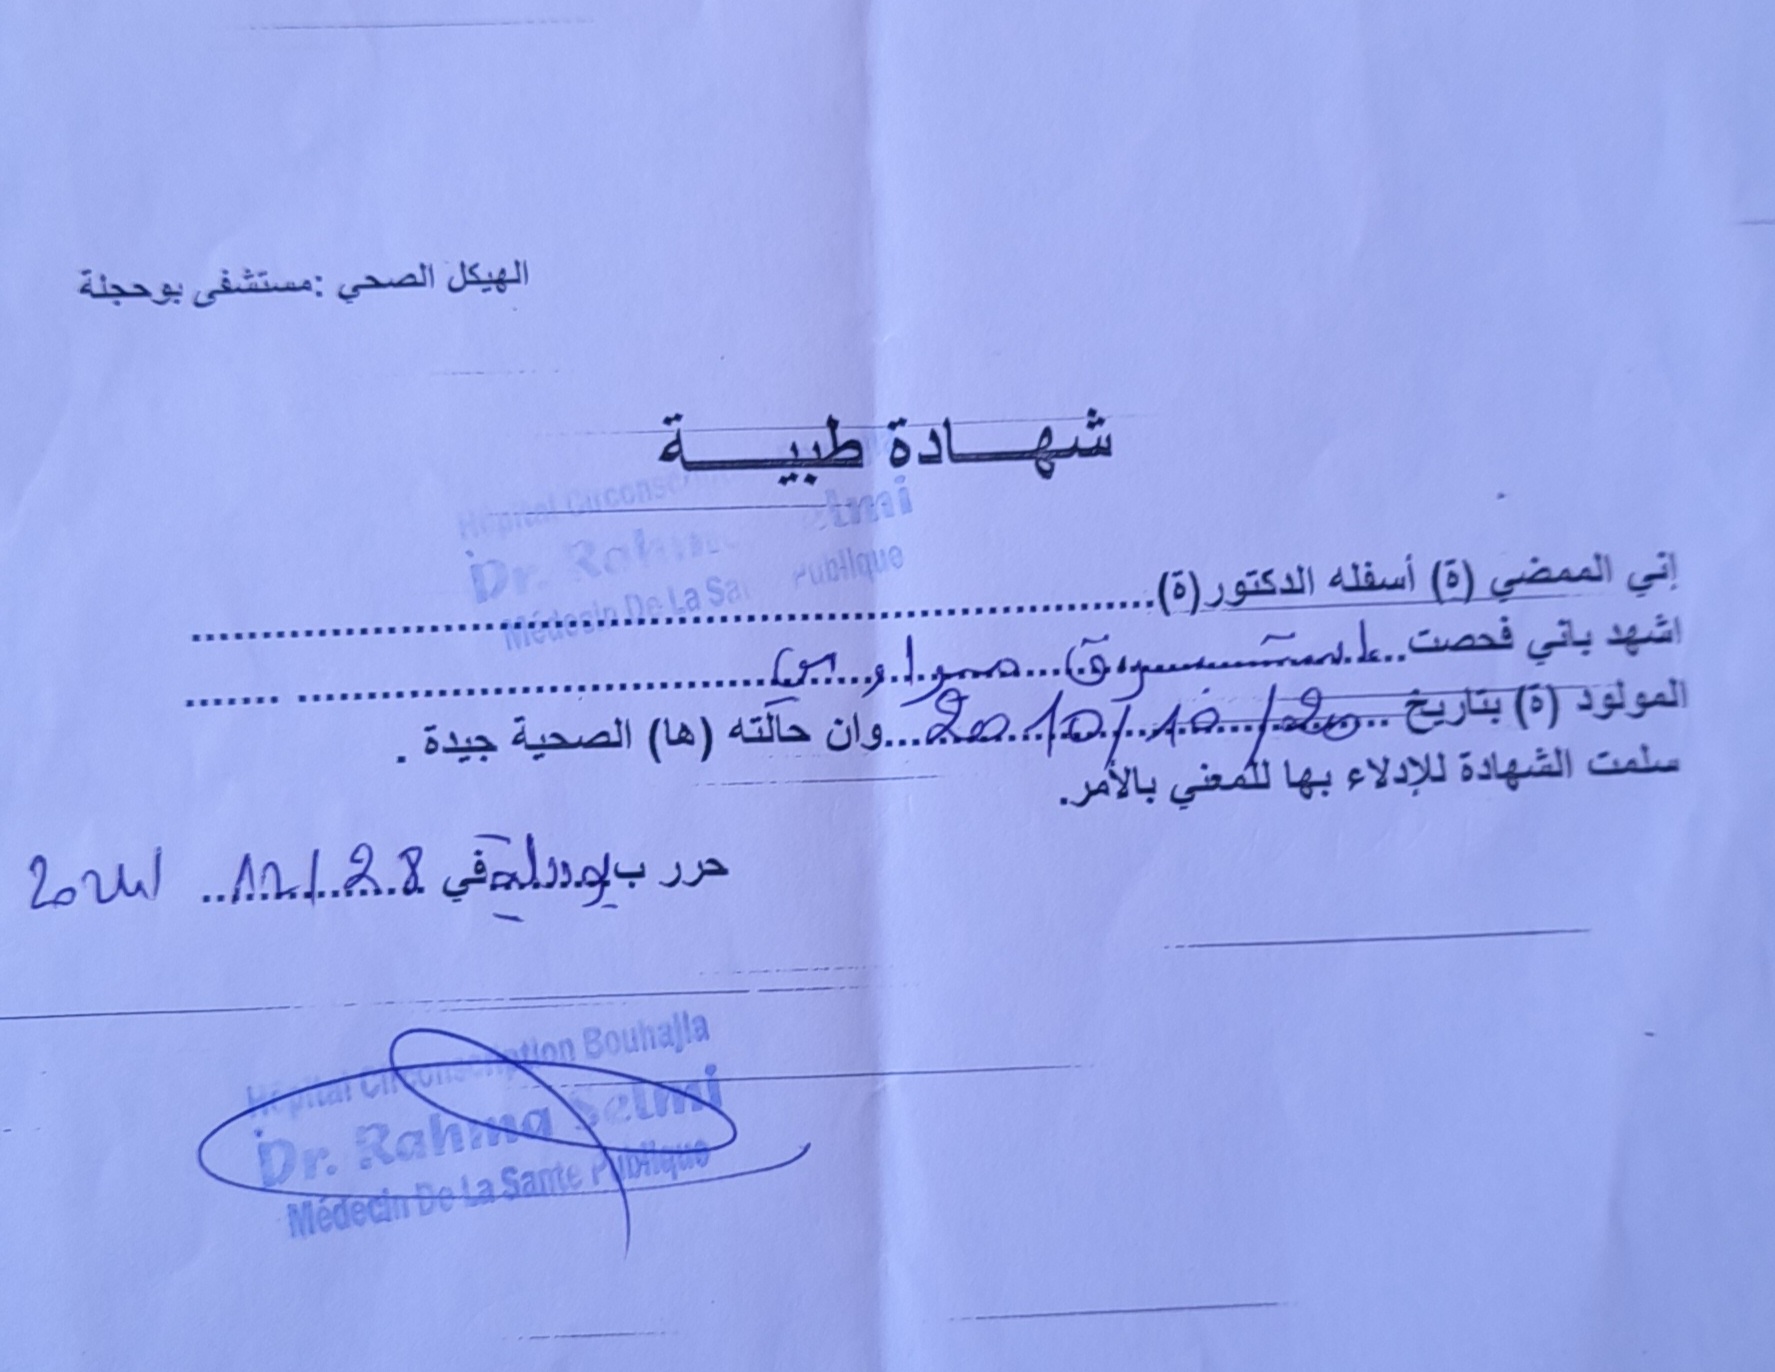 الهيكل الصحي :مستشفى بوحجلة
شهـــادة طبيـــة
Hôpital Circonscrip
Dr. Rahma Selmi
Médecin De La Sante Publique
إني الممضي (ة) أسفله الدكتور(ة)............
اشهد باني فحصت..
المولود (ة) بتاريخ ..20/10/2010...وان حالته (ها) الصحية جيدة .
سلمت الشهادة للإدلاء بها للمعني بالأمر.
حرر ب في 28/12/2024
Hôpital Circonscription Bouhajla
Dr. Rahma Selmi
Médecin De La Sante Publique